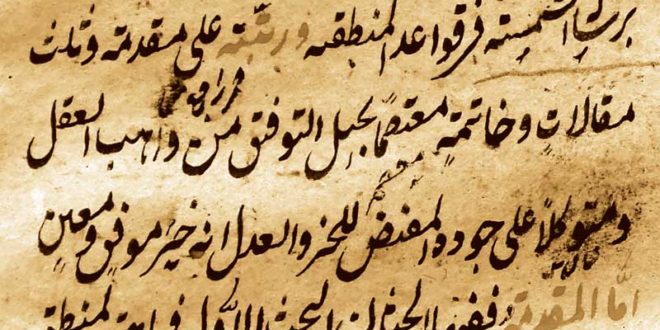 بالرسالة الشمسية في القواعد المنطقية ورتبته على مقدمة وثلث
مقالات وخاتمة معتصما بحبل التوفيق من واهب العقل
ومتوكلا على جوده المفيض للخير والعدل انه خير موفق ومعين
اما المقدمة ففيها بحثان البحث الاول في ماهية المنطق